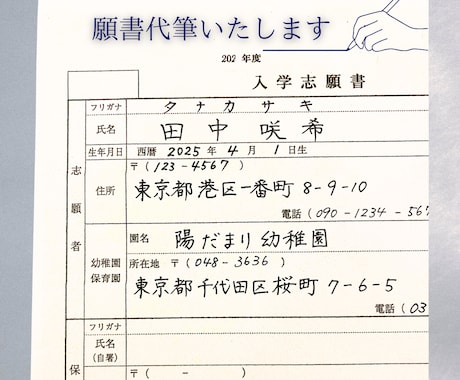 願書代筆いたします
202 年度
入学志願書
フリガナ タナカサキ
氏名 田中咲希
生年月日 西暦 2025 年 4 月 1 日生
志願者
住所 〒(123-4567)
東京都港区一番町 8-9-10
電話 (090-1234-567
幼稚園 保育園
園名 陽だまり幼稚園
所在地 〒(048-3636)
東京都千代田区桜町 7-6-5
電話 (03
フリガナ
氏名
(自署)
保
〒( - )